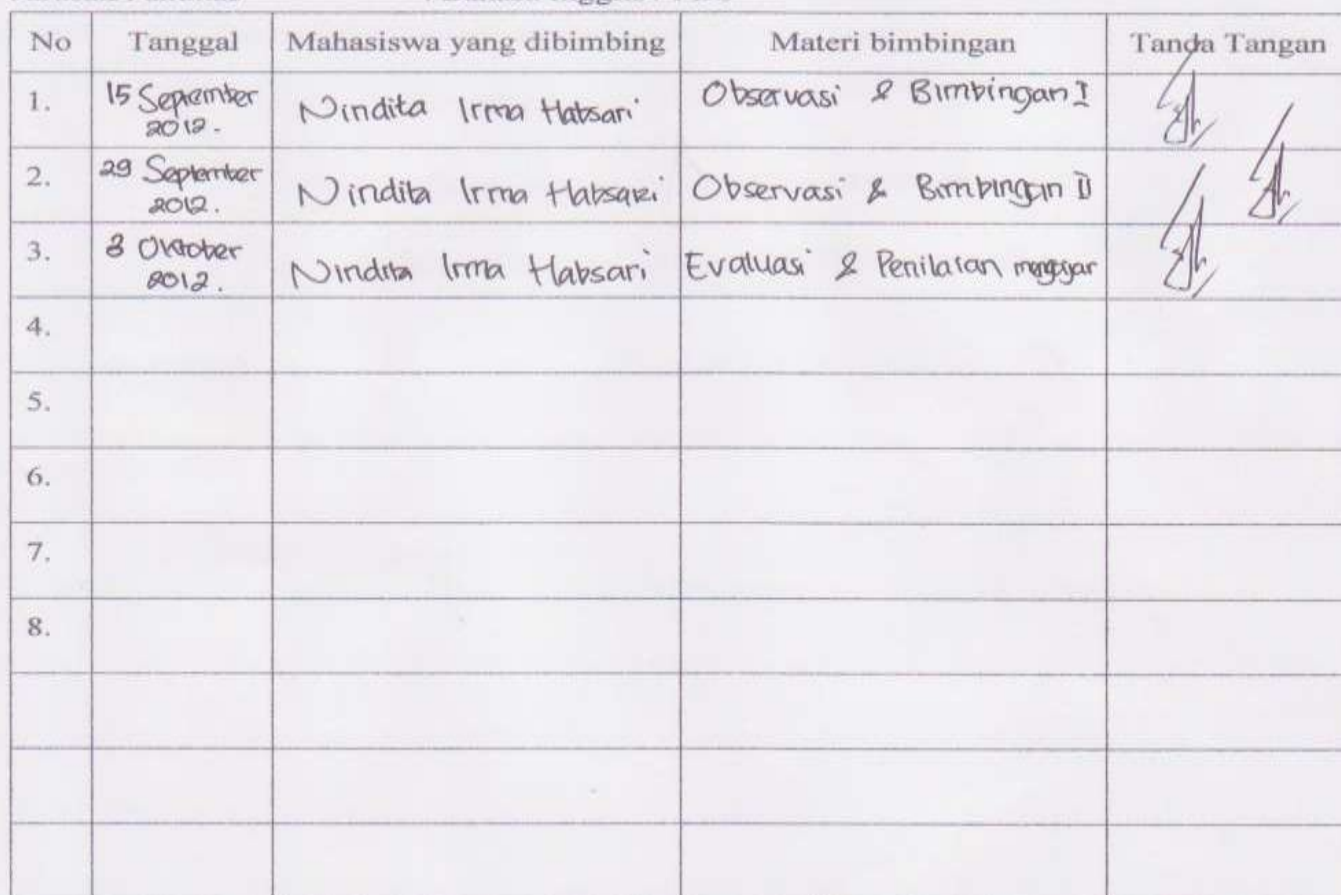 No Tanggal Mahasiswa yang dibimbing Materi bimbingan Tanda Tangan
1. 15 September 2012. Nindita Irma Habsari Observasi & Bimbingan I
2. 29 September 2012. Nindita Irma Habsari Observasi & Bimbingan II
3. 3 Oktober 2012. Nindita Irma Habsari Evaluasi & Penilaian mengajar
4.
5.
6.
7.
8.